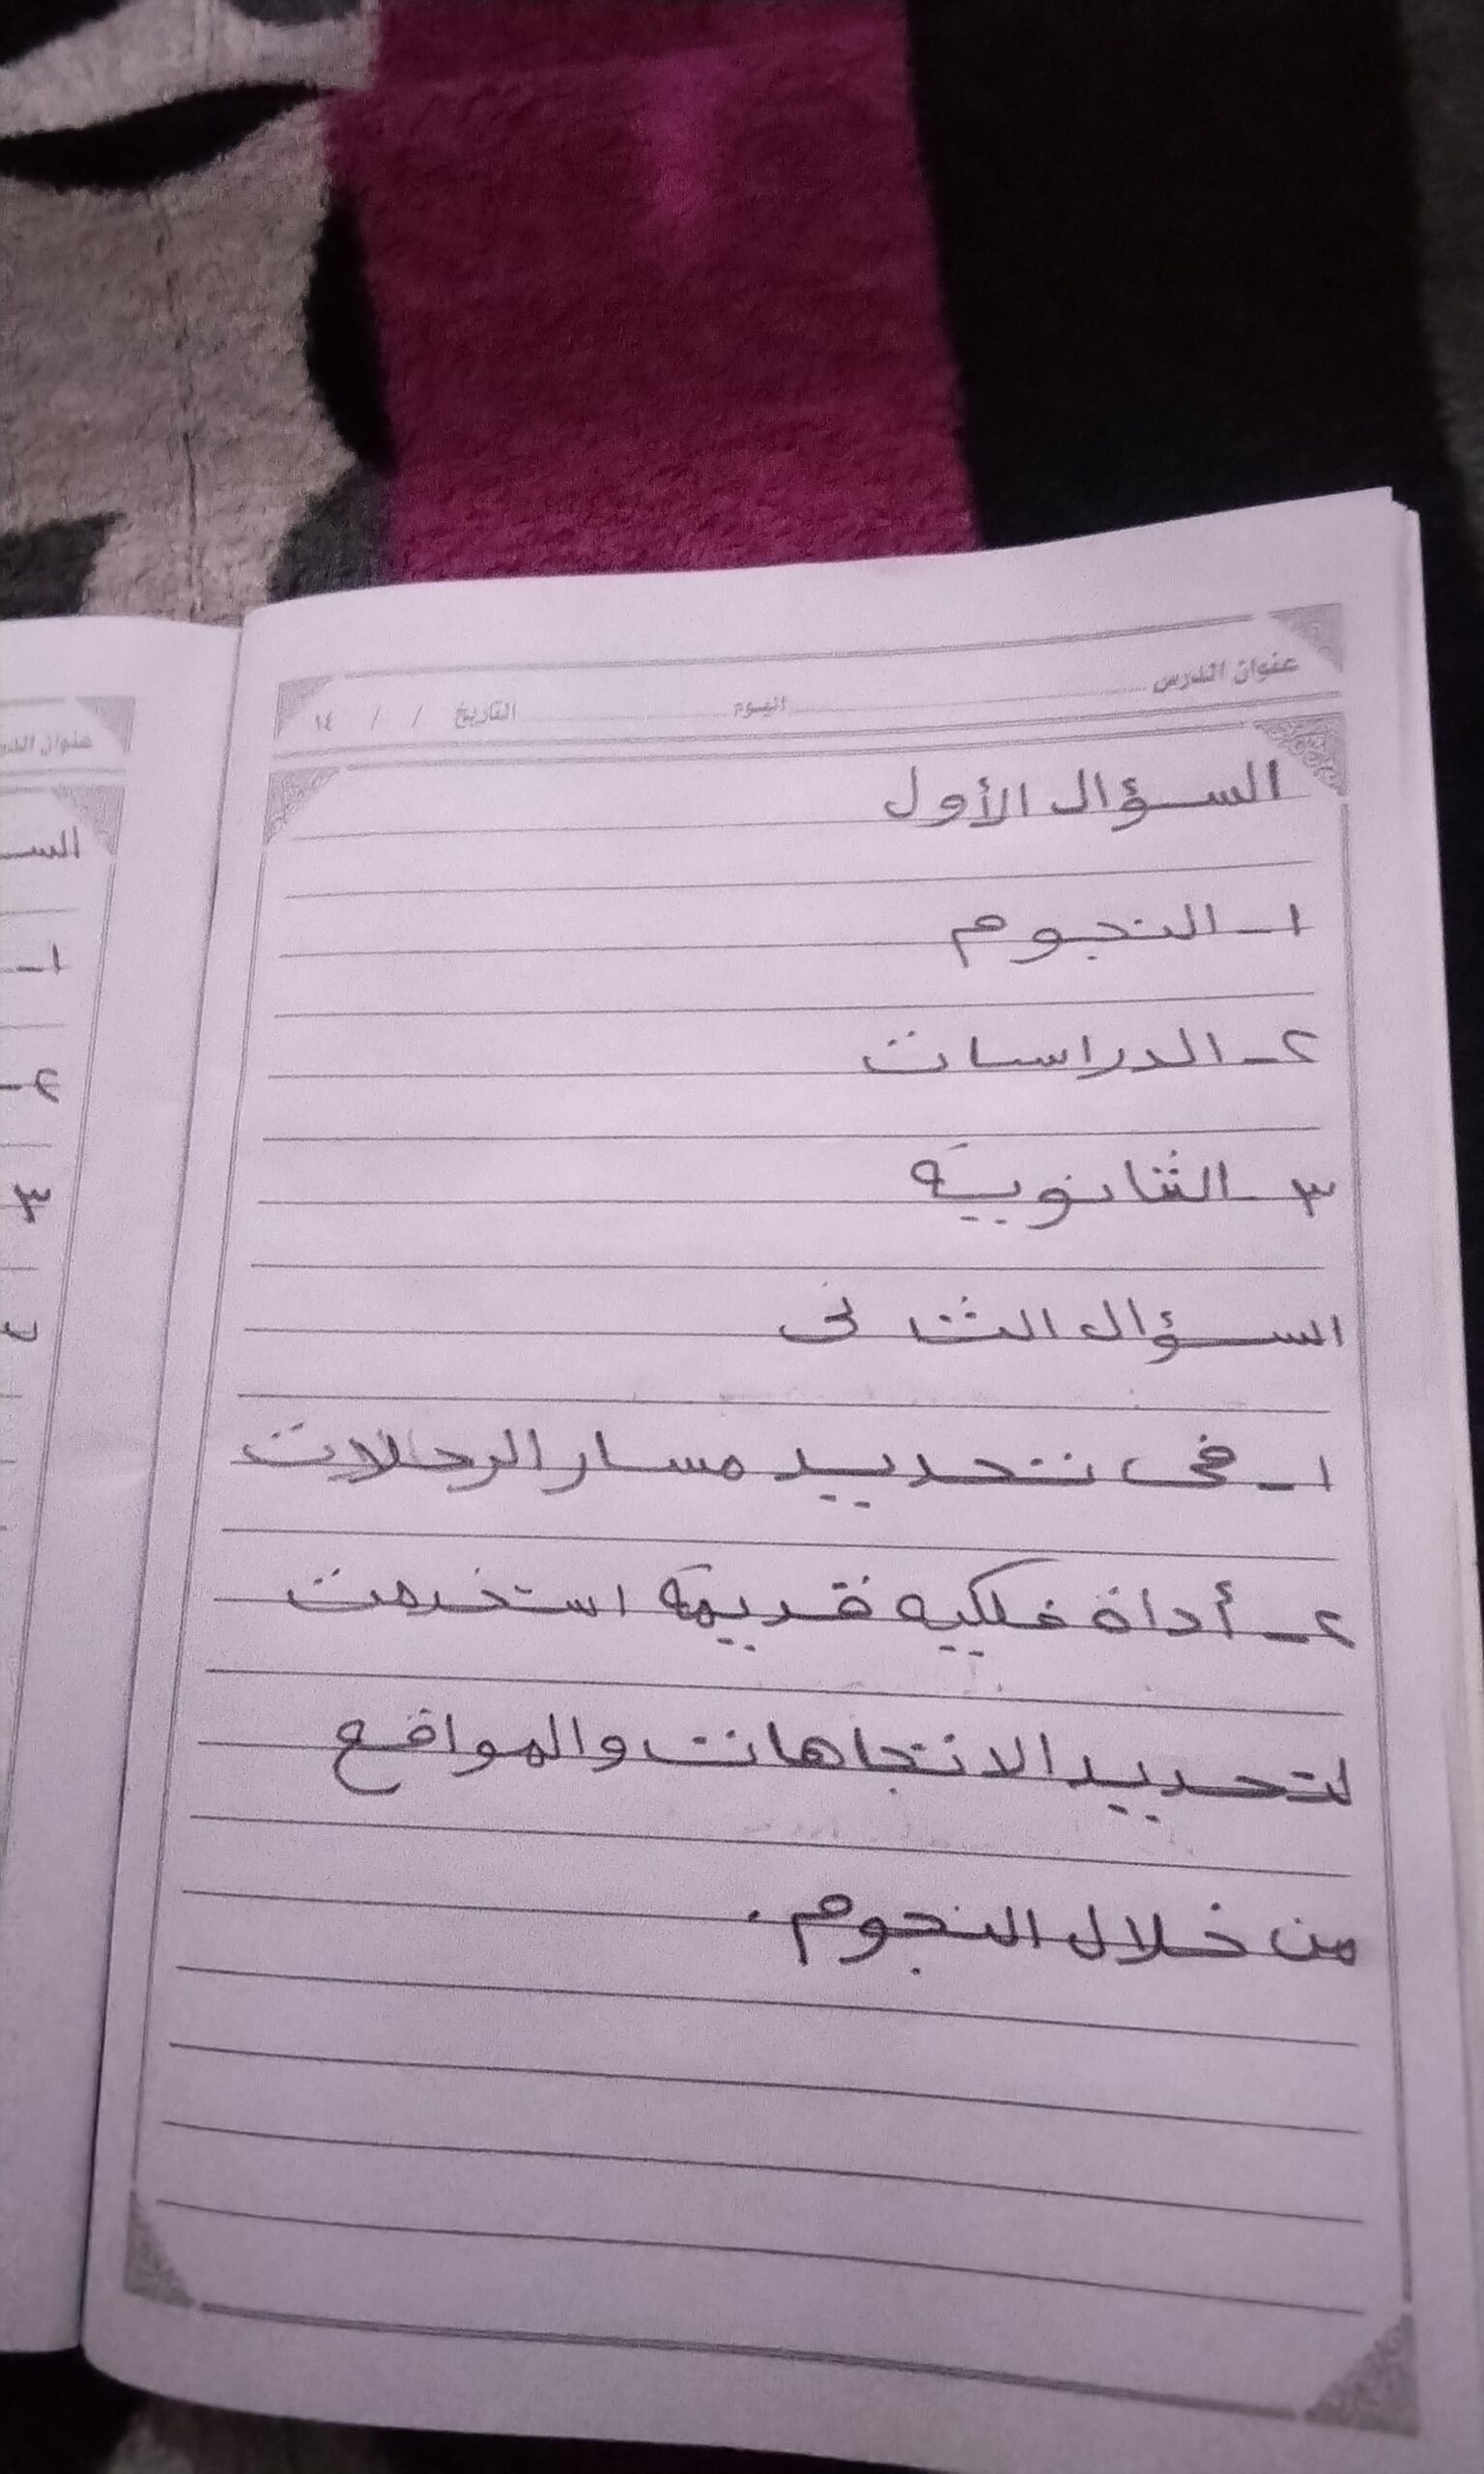 عنوان الدرس اليوم التاريخ / / ١٤
السؤال الأول
١- النجوم
٢- الدراسات
٣- الثانوية
السؤال الثانى
١- فى تحديد مسار الرحلات
٢- أداة فلكيه قديمة استخدمت
لتحديد الاتجاهات والمواقع
من خلال النجوم.
عنوان
السـ
١-
٢-
٣